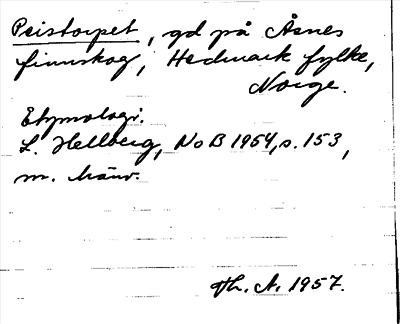 Peistorpet, gd på Åsnes
finnskog, Hedmark fylke,
Norge.
Etymologi:
L. Hellberg, NoB 1954, s. 153,
m. hänv.
Th. A. 1957.